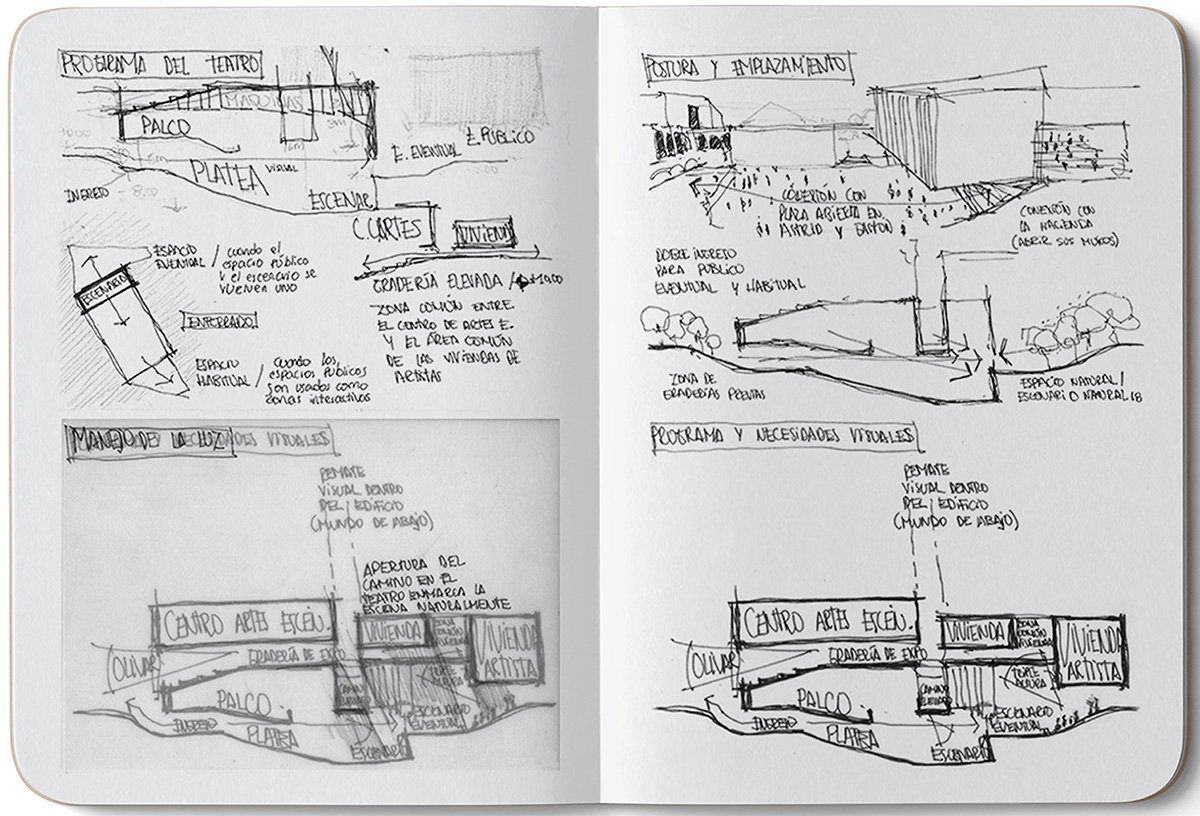 PROGRAMA DEL TEATRO
MAQUINAS
PALCO
3m
PLATEA
VISUAL
INGRESO
ESCENAR.
E. EVENTUAL
E. PÚBLICO
C. CARTES
VIVIEND
ESPACIO
EVENTUAL / cuando el
espacio público
y el escenario se
vuelven uno
ESCENARIO
ENTERRADO
ESPACIO
HABITUAL / Cuando los
espacios públicos
son usados como
zonas interactivas
GRADERÍA ELEVADA /
ZONA COMÚN ENTRE
EL CENTRO DE ARTES E.
Y EL ÁREA COMÚN
DE LAS VIVIENDAS DE
ARTISTAS
MANEJO DE LA LUZ
DADES VISUALES
REMATE
VISUAL DENTRO
DEL EDIFICIO
(MUNDO DE ABAJO)
APERTURA DEL
CAMINO EN EL
TEATRO ENMARCA LA
ESCENA NATURALMENTE
CENTRO ARTES ESCÉN.
VIVIENDA
VIVIENDA
ARTISTA
OLIVAR
GRADERÍA DE EXPO
PALCO
INGRESO
PLATEA
ESCENARIO
ESCENARIO
EVENTUAL
POSTURA Y EMPLAZAMIENTO
CONEXIÓN CON
PLAZA ABIERTA EN
ASTRID Y GASTÓN
CONEXIÓN CON
LA HACIENDA
(ABRIR SUS MUROS)
DOBLE INGRESO
PARA PUBLICO
EVENTUAL Y HABITUAL
ZONA DE
GRADERÍAS
ESPACIO NATURAL/
ESCENARIO NATURAL
PROGRAMA Y NECESIDADES VISUALES
REMATE
VISUAL DENTRO
DEL EDIFICIO
(MUNDO DE ABAJO)
CENTRO ARTES ESCÉN.
VIVIENDA
VIVIENDA
ARTISTA
OLIVAR
GRADERÍA DE EXPO
PALCO
INGRESO
PLATEA
ESCENARIO
ESCENARIO
EVENTUAL